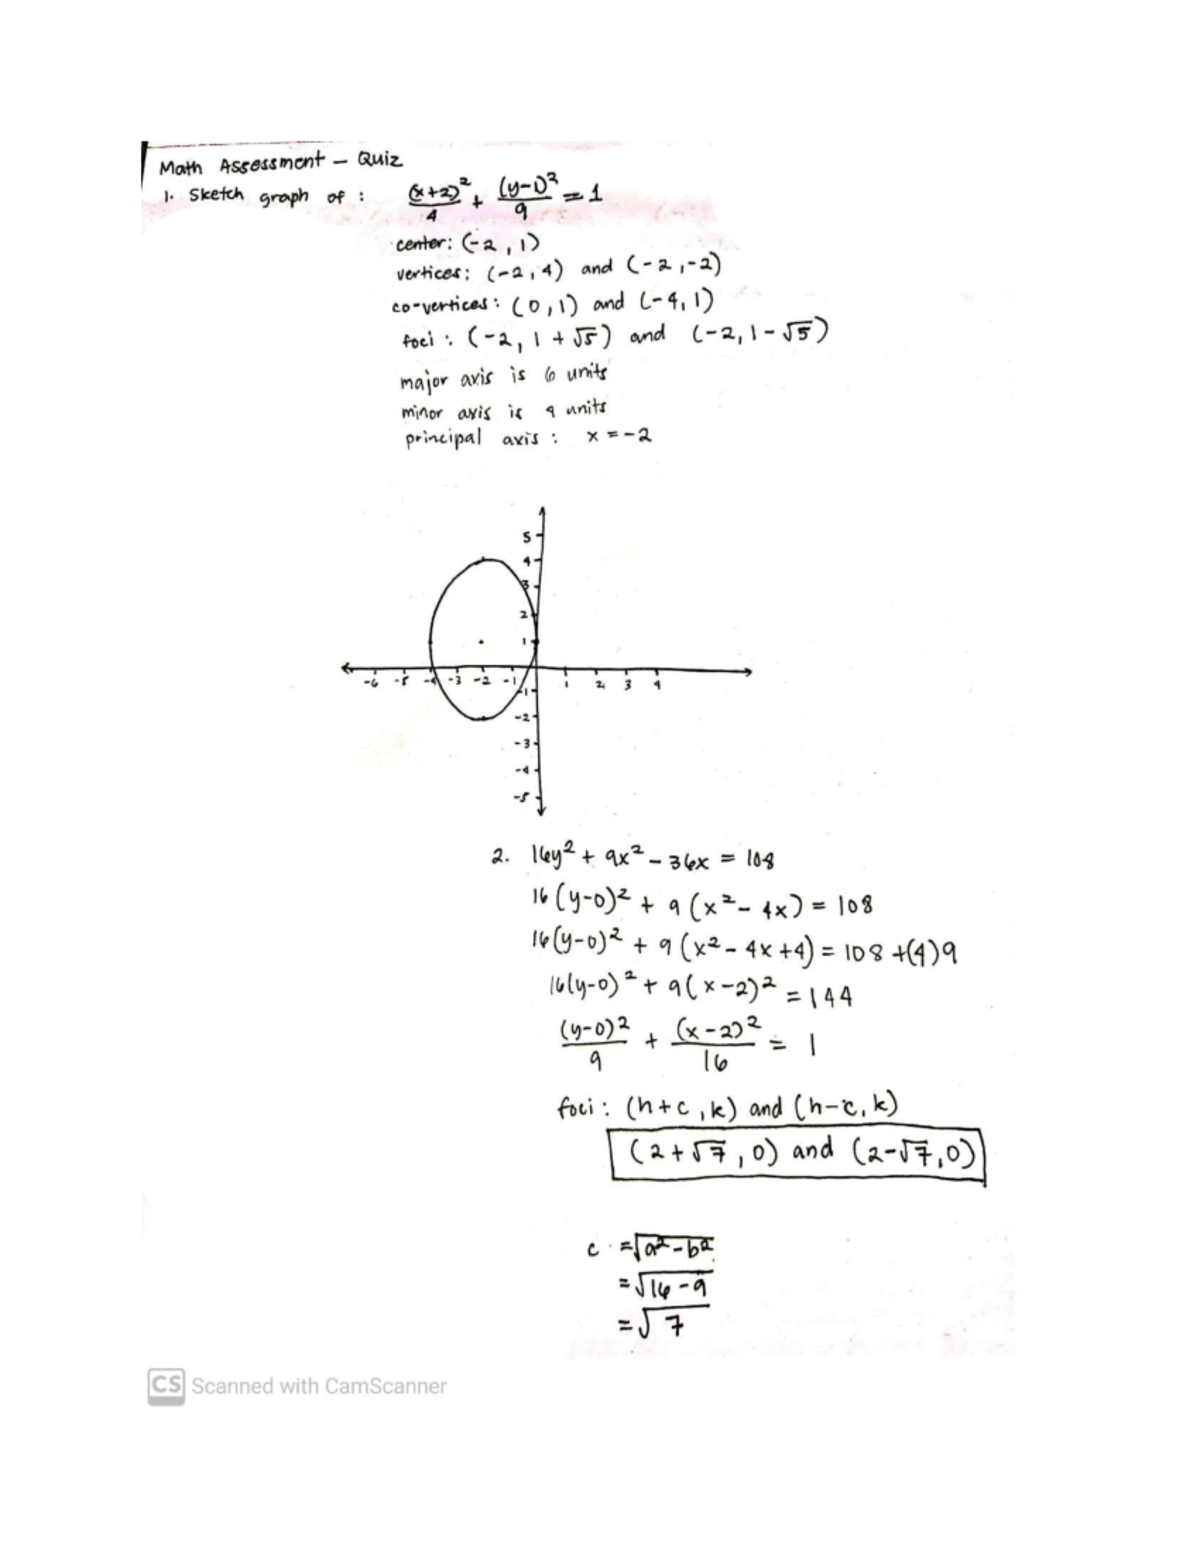 Math Assessment – Quiz
1. Sketch graph of : (x+2)²/4 + (y-1)²/9 = 1
center: (-2, 1)
vertices: (-2, 4) and (-2, -2)
co-vertices: (0, 1) and (-4, 1)
foci : (-2, 1 + √5) and (-2, 1 - √5)
major axis is 6 units
minor axis is 4 units
principal axis : x = -2
5
4
3
2
1
-6 -5 -4 -3 -2 -1 1 2 3 4
-1
-2
-3
-4
-5
2. 16y² + 9x² - 36x = 108
16(y-0)² + 9(x² - 4x) = 108
16(y-0)² + 9(x² - 4x + 4) = 108 + (4)9
16(y-0)² + 9(x-2)² = 144
(y-0)²/9 + (x-2)²/16 = 1
foci : (h+c, k) and (h-c, k)
(2+√7, 0) and (2-√7, 0)
c = √a² - b²
= √16 - 9
= √7
CS Scanned with CamScanner